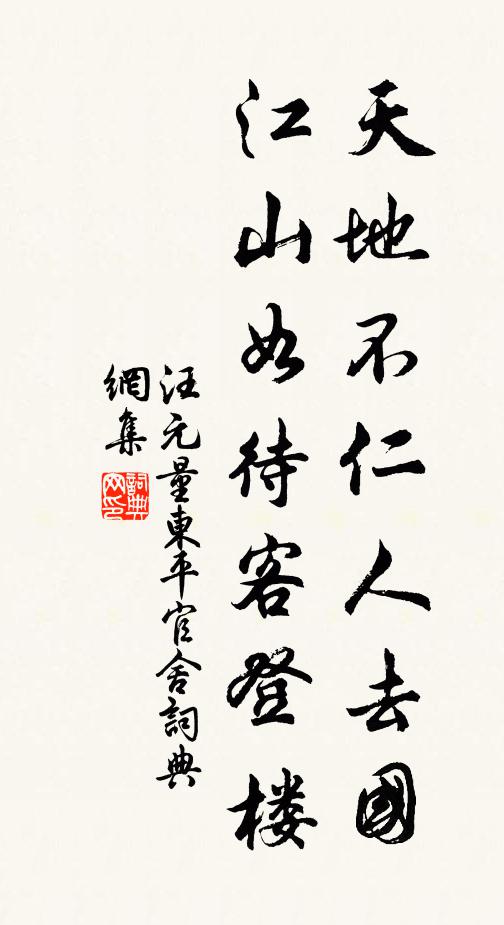 天地不仁人去國
江山如待客登楼
汪元量東平官舍詞典
網集
詞典
网印